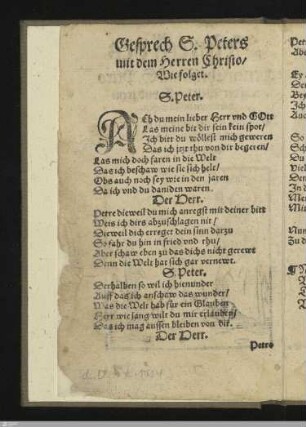 Gesprech S. Peters
mit dem Herren Christo/
Wie folget.
S. Peter.
ACh du mein lieber Herr vnd GOtt
Las meine bit dir sein kein spot/
Ich bitt du wöllest mich geweren
Das ich itzt thu von dir begeren/
Las mich doch faren in die Welt
Das ich beschaw wie sie sich helt/
Obs auch noch sey wie in den jaren
Da ich vnd du daniden waren.
Der Herr.
Petre dieweil du mich anregst mit deiner bitt
Weis ich dirs abzuschlagen nit/
Dieweil dich erreget dein sinn darzu
So fahr du hin in fried vnd rhu/
Aber schaw eben zu das dichs nicht gerewt
Denn die Welt hat sich gar vernewt.
S. Peter.
Derhalben so wil ich hienunder
Auff das ich anschaw das wunder/
Was die Welt hab für ein Glauben
Herr wie lang wilt du mir erlauben/
Das ich mag aussen bleiben von dir.
Der Herr.
Petre